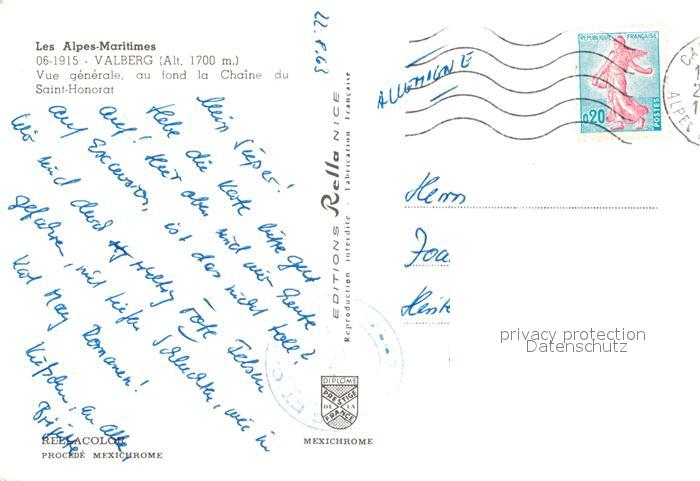 Les Alpes-Maritimes
06-1915 - VALBERG (Alt. 1700 m.)
Vue générale, au fond la Chaîne du
Saint-Honorat
22.8.63
Mein Süsser!
Hebe die Karte bitte gut
auf! Hier oben sind wir heute
auf Excursion, ist das nicht toll?
Wir sind durch rote Felsen
gefahren, mit tiefen Schluchten, wie in
Karl May Romanen!
Küsschen, an alle,
Brigitte
RELLACOLOR
PROCÉDÉ MEXICHROME
MEXICHROME
EDITIONS Rella NICE
Reproduction interdite - Fabrication Française
DIPLOME
PRESTIGE
DE LA
FRANCE
ALLEMAGNE
REPUBLIQUE FRANÇAISE
0,20
POSTES
ALPES
Herrn
Joa
privacy protection
Datenschutz